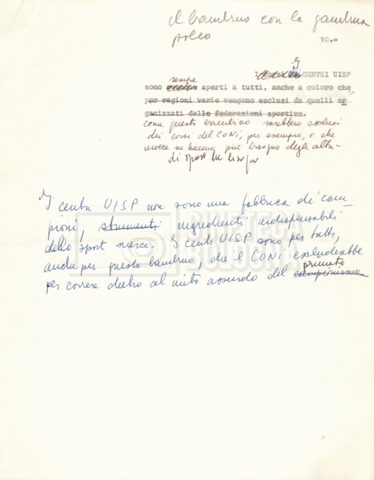 il bambino con la gambina
polio
10.=
I CENTRI UISP
sempre
sono aperti a tutti, anche a coloro che,
per ragioni varie vengono esclusi da quelli or
ganizzati dalle federazioni sportive.
come questo bambino sarebbero esclusi
dai corsi del CONI, per esempio, e che
invece ne hanno più bisogno degli altri
di sport
I centri UISP non sono una fabbrica di cam-
pioni, strumenti ingredienti indispensabili
dello sport merce. I centri UISP sono per tutti,
anche per questo bambino, che il CONI escluderebbe
primato
per correre dietro al mito assurdo del campionismo